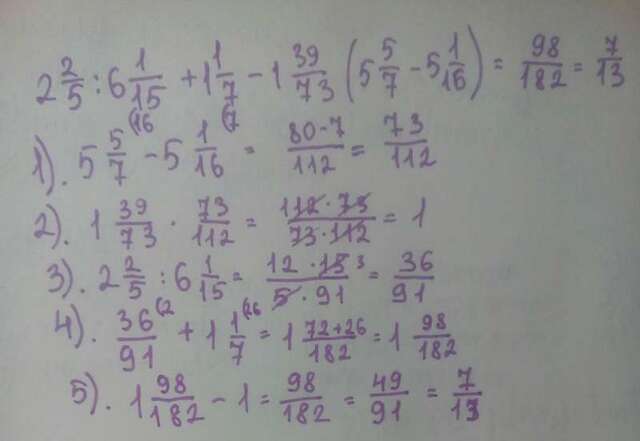 2 2/5 : 6 1/15 + 1 1/7 - 1 39/73 (5 5/7 - 5 1/16) = 98/182 = 7/13
1). 5 5/7 (16 - 5 1/16 (7 = 80-7/112 = 73/112
2). 1 39/73 · 73/112 = 112·73/73·112 = 1
3). 2 2/5 : 6 1/15 = 12·15 3/5·91 = 36/91
4). 36/91 (2 + 1 1/7 (26 = 1 72+26/182 = 1 98/182
5). 1 98/182 - 1 = 98/182 = 49/91 = 7/13